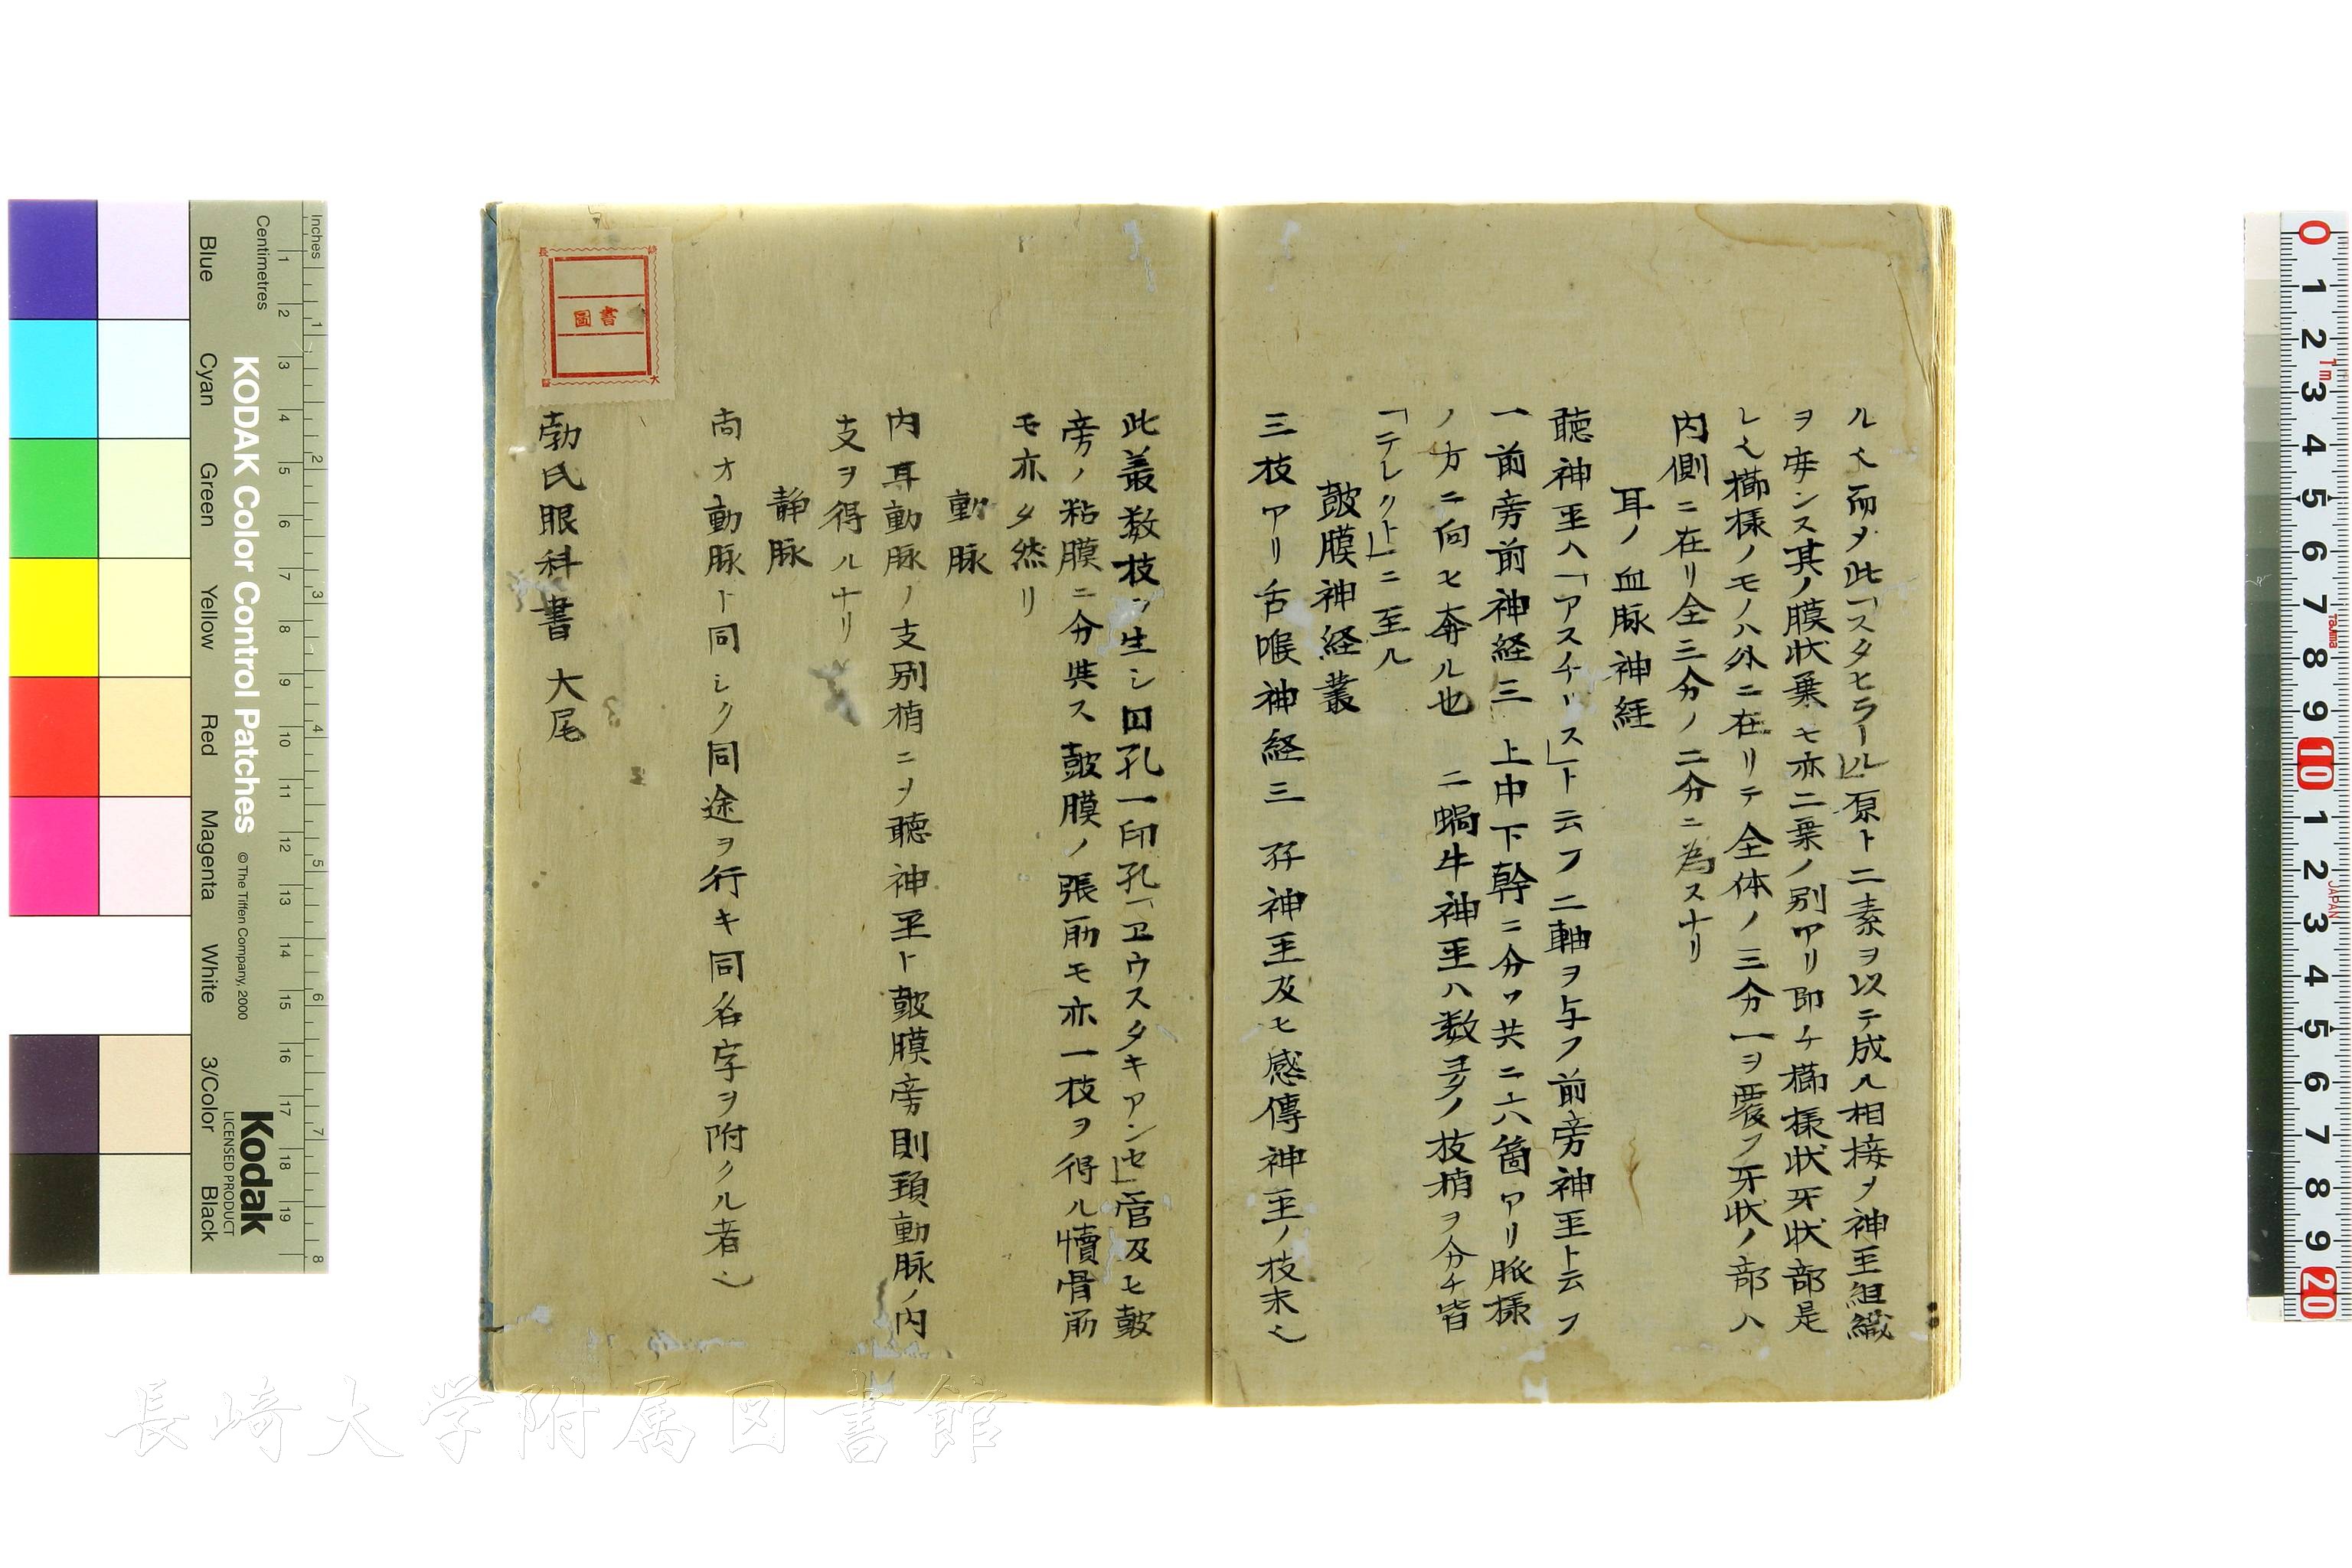 ル也而メ此「スタヒラール」原ト二素ヲ以テ成ル相接メ神圣組織
ヲ安ンス其ノ膜状葉モ亦二葉ノ別アリ即チ櫛様状牙状部是
レ也櫛様ノモノハ外ニ在リテ全体ノ三分一ヲ覆フ牙状ノ部ハ
内側ニ在リ全三分ノ二分ニ為スナリ
耳ノ血脈神経
聴神圣ハ「アスチース」ト云フ二軸ヲ与フ前旁神圣ト云フ
一前旁前神経三 上中下幹ニ分ツ共ニ六箇アリ脈様
ノ方ニ向ヒ奔ル也 二蝸牛神圣ハ数多ノ枝梢ヲ分チ皆
「テレクト」ニ至ル
皷膜神経叢
三枝アリ舌喉神経三 孖神圣及ヒ感傳神圣ノ枝末也
此叢数枝ヲ生シ囗孔一印孔「ヱウスタキアンセ」管及ヒ皷
旁ノ粘膜ニ分岐ス皷膜ノ張筋モ亦一枝ヲ得ル犢骨筋
モ亦タ然リ
動脉
内耳動脉ノ支別梢ニヲ聴神圣ト皷膜旁則頚動脉ノ内
支ヲ得ルナリ
静脉
尚オ動脉ト同シク同途ヲ行キ同名字ヲ附クル者也
勃氏眼科書 大尾
圖書
長崎大学附属図書館
KODAK Color Control Patches
©The Tiffen Company, 2000
Kodak
LICENSED PRODUCT
Inches
Centimetres
Blue
Cyan
Green
Yellow
Red
Magenta
White
3/Color
Black